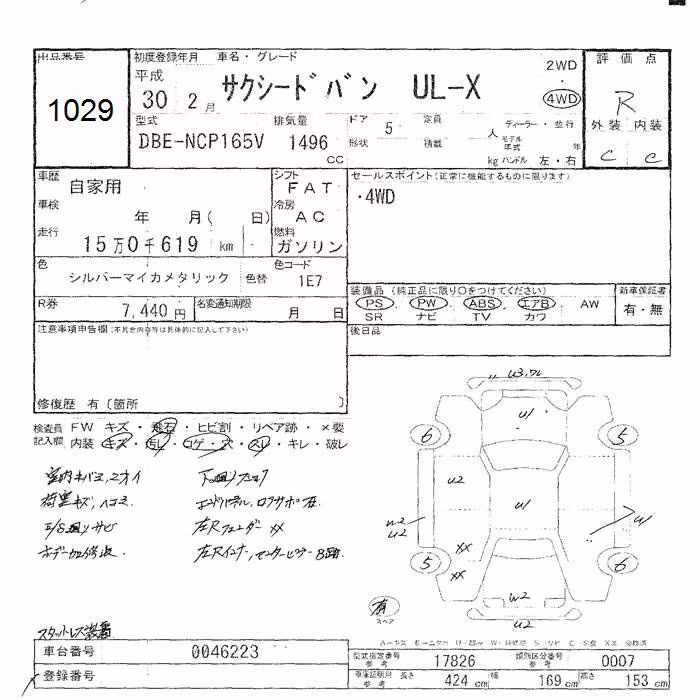 出品番号 初度登録年月 車名・グレード 評価点
1029 平成 30 2月 サクシードバン UL-X 2WD・4WD R
型式 排気量 ドア 定員 ディーラー・並行 外装 内装
DBE-NCP165V 1496 CC 5 人 形状 積載 kg モデル年式 年 ハンドル 左・右 C C
車歴 自家用 シフト FAT セールスポイント(正常に機能するものに限ります)
車検 年 月( 日) 冷房 AC ・4WD
走行 15万0千619 km 燃料 ガソリン
色 シルバーマイカメタリック 色替 色コード 1E7
装備品 (純正品に限り○をつけてください) 新車保証書
R券 7,440円 名変通知期限 月 日 PS PW ABS エアB AW 有・無
SR ナビ TV カワ
注意事項申告欄(不具合内容等は具体的に記入して下さい) 後日品
修復歴 有〔箇所 〕
検査員 FW キズ・飛石・ヒビ割・リペア跡・×要
記入欄 内装 キズ・汚レ・コゲ・穴・スレ・キレ・破レ
室内キバミ、ニオイ
荷室キズ、ヘコミ
左Rフェンダー XX
U3 W
U1
6 5
U2
U1
W2 U2 U1
XX
5 6
XX
W2
有 スペア
U2
スタットレス装着
車台番号 0046223
型式指定番号 参考 17826 類別区分番号 参考 0007
登録番号
車庫証明用 参考 長さ 424cm 幅 169cm 高さ 153cm